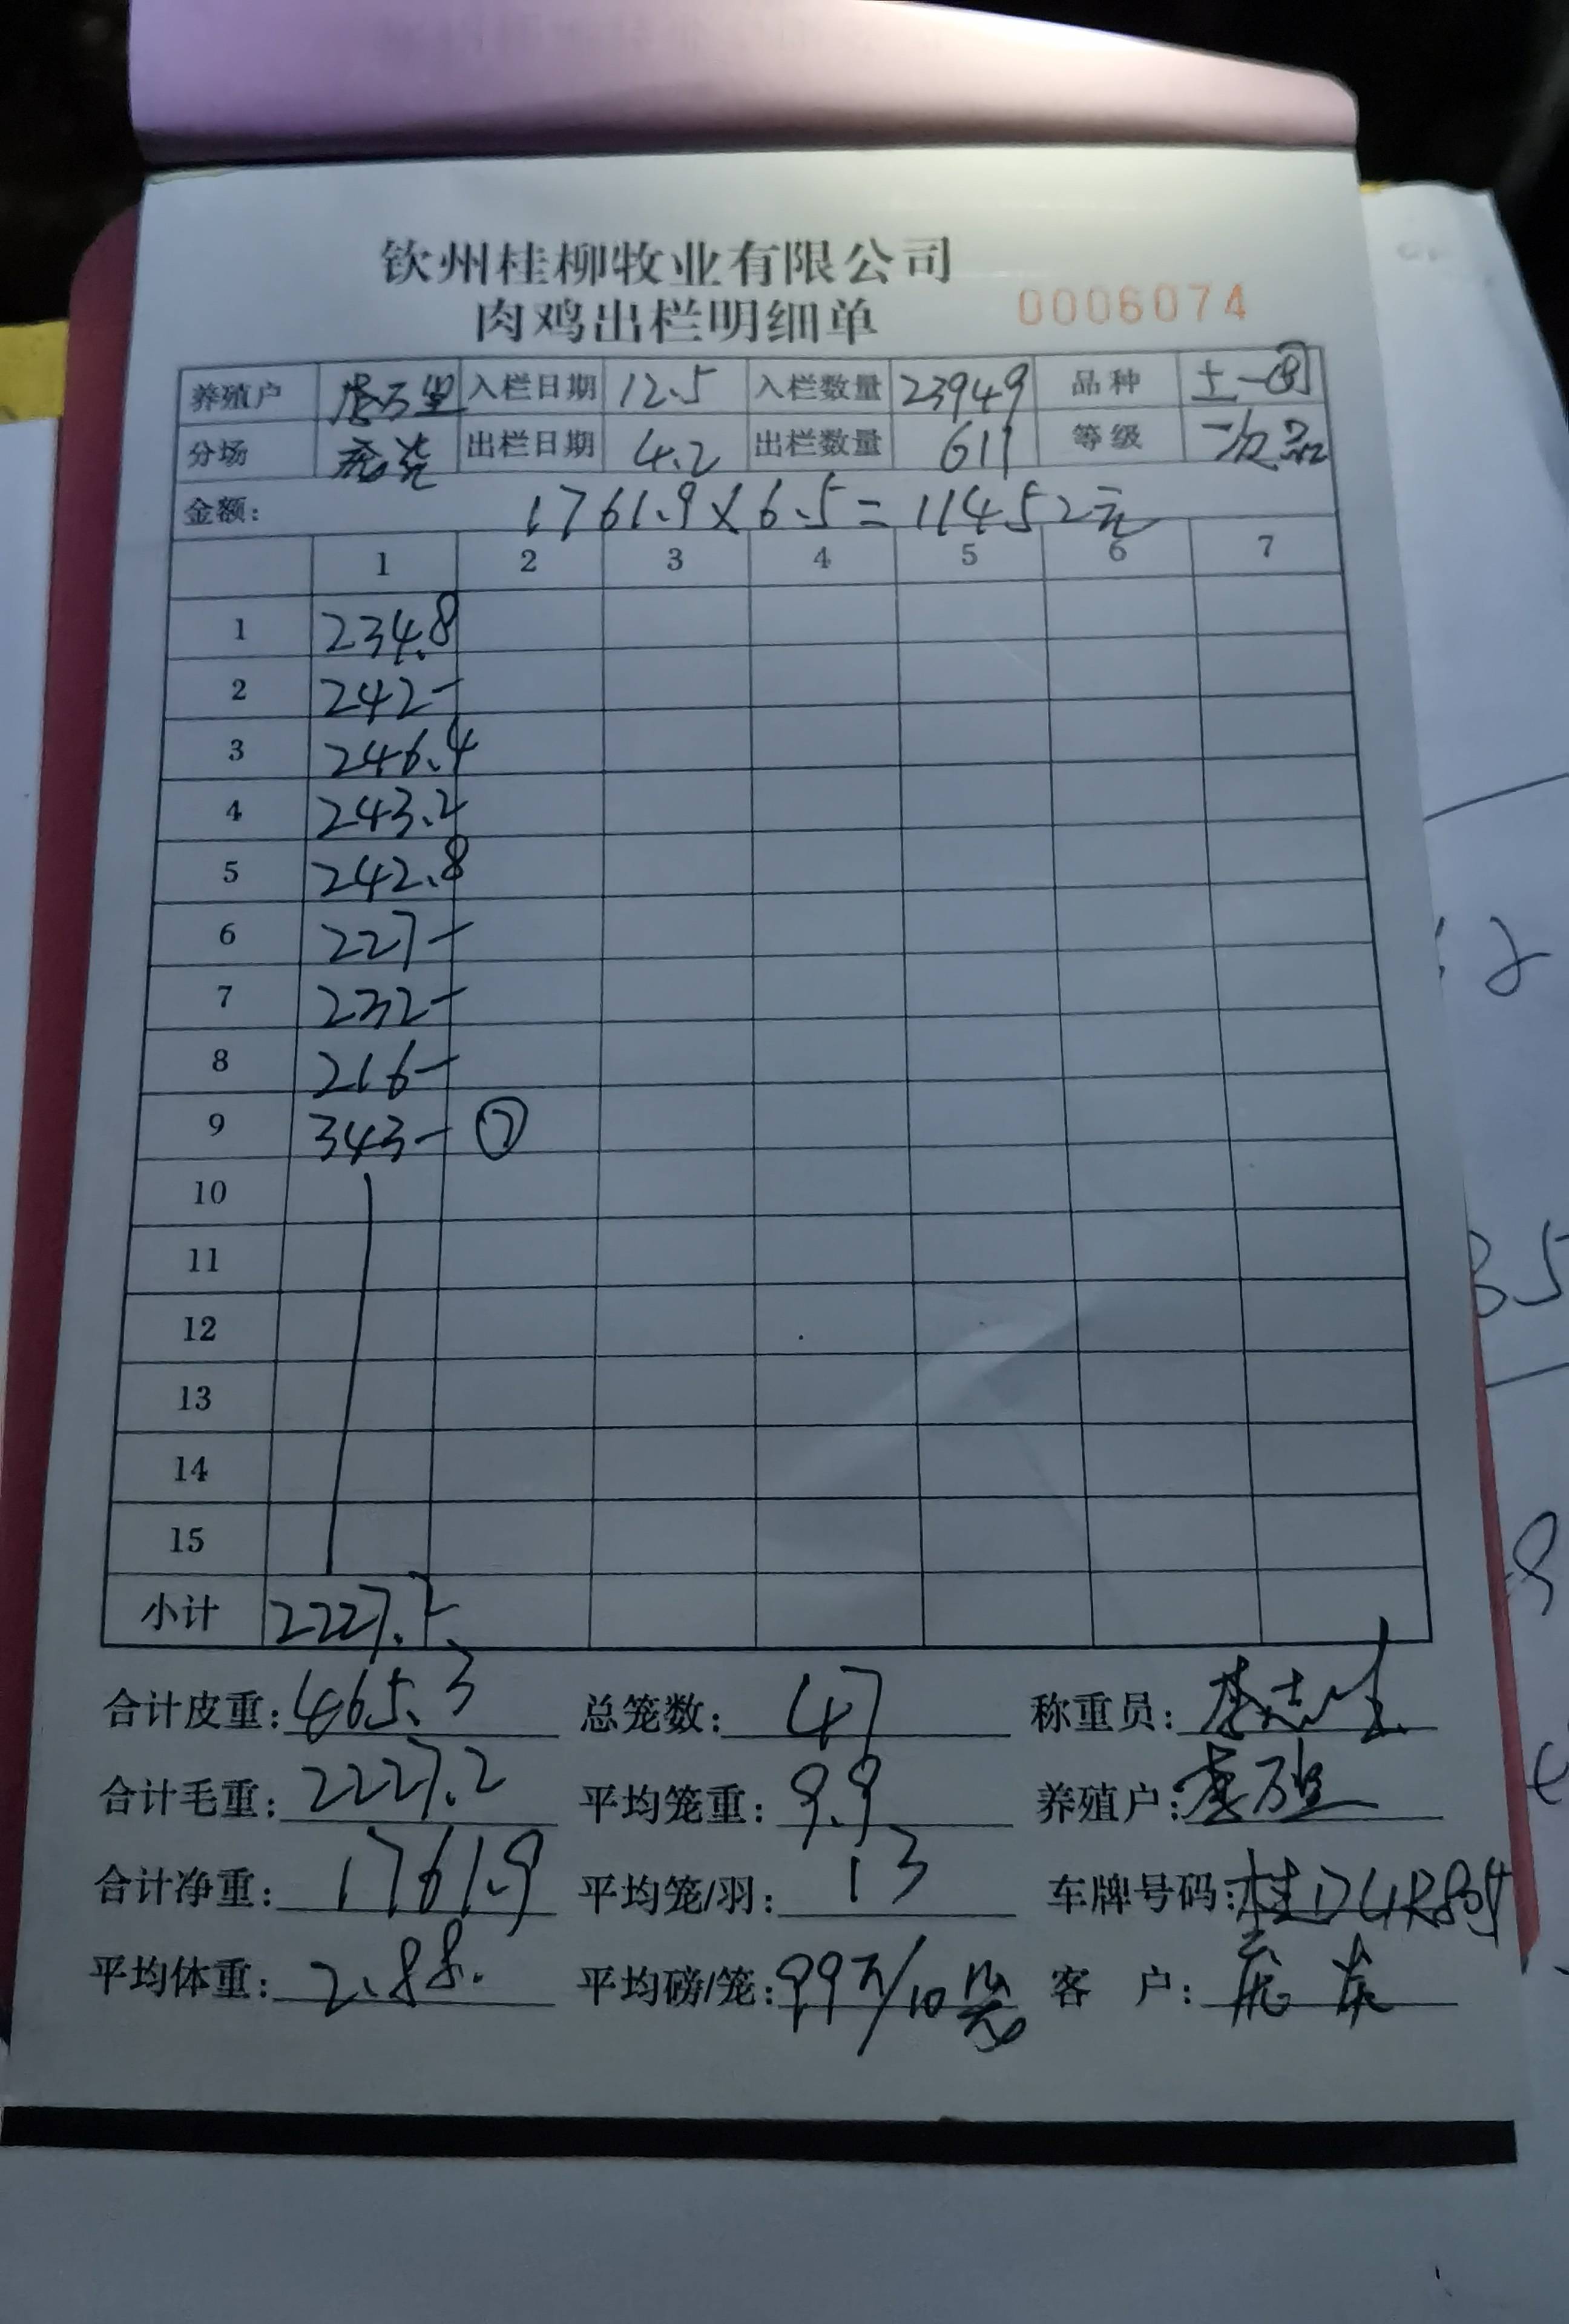 钦州桂柳牧业有限公司
肉鸡出栏明细单 0006074
养殖户 入栏日期 12.5 入栏数量 23949 品种 土一
分场 出栏日期 4.2 出栏数量 611 等级 二次品
金额: 1761.9×6.5=11452元
1 2 3 4 5 6 7
1 234.8
2 242-
3 246.4
4 243.2
5 242.8
6 227-
7 232-
8 216-
9 343- ⑦
10
11
12
13
14
15
小计 2227.2
合计皮重: 465.3 总笼数: 47 称重员:
合计毛重: 2227.2 平均笼重: 9.9 养殖户:
合计净重: 1761.9 平均笼/羽: 13 车牌号码: 桂D
平均体重: 2.88. 平均磅/笼: 99斤/10笼 客 户: